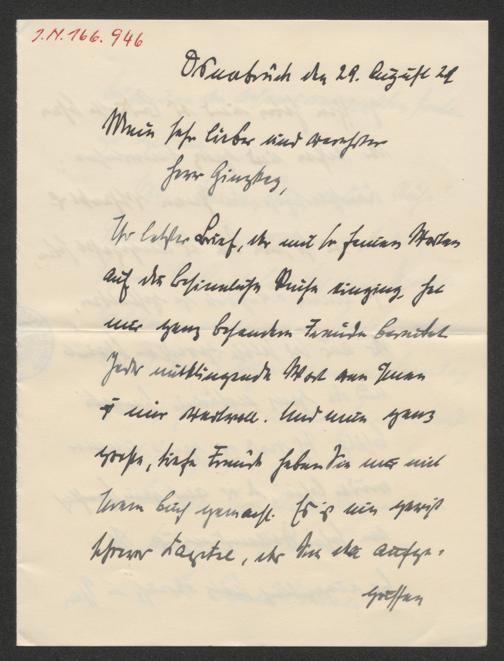 J.N. 166.946
Osnabrück den 29. August 29
Mein sehr lieber und verehrter
Herr Ginzkey,
Ihr letzter Brief, der mit so feinen Worten
auf die besinnliche Reise einging, hat
mir ganz besondere Freude bereitet.
Jedes mitklingende Wort von Ihnen
ist mir wertvoll. Und nun ganz
große, tiefe Freude haben Sie mir mit
Ihrem Buch gemacht. Es ist ein gewiß
schweres Kapitel, das Sie da aufge-
griffen